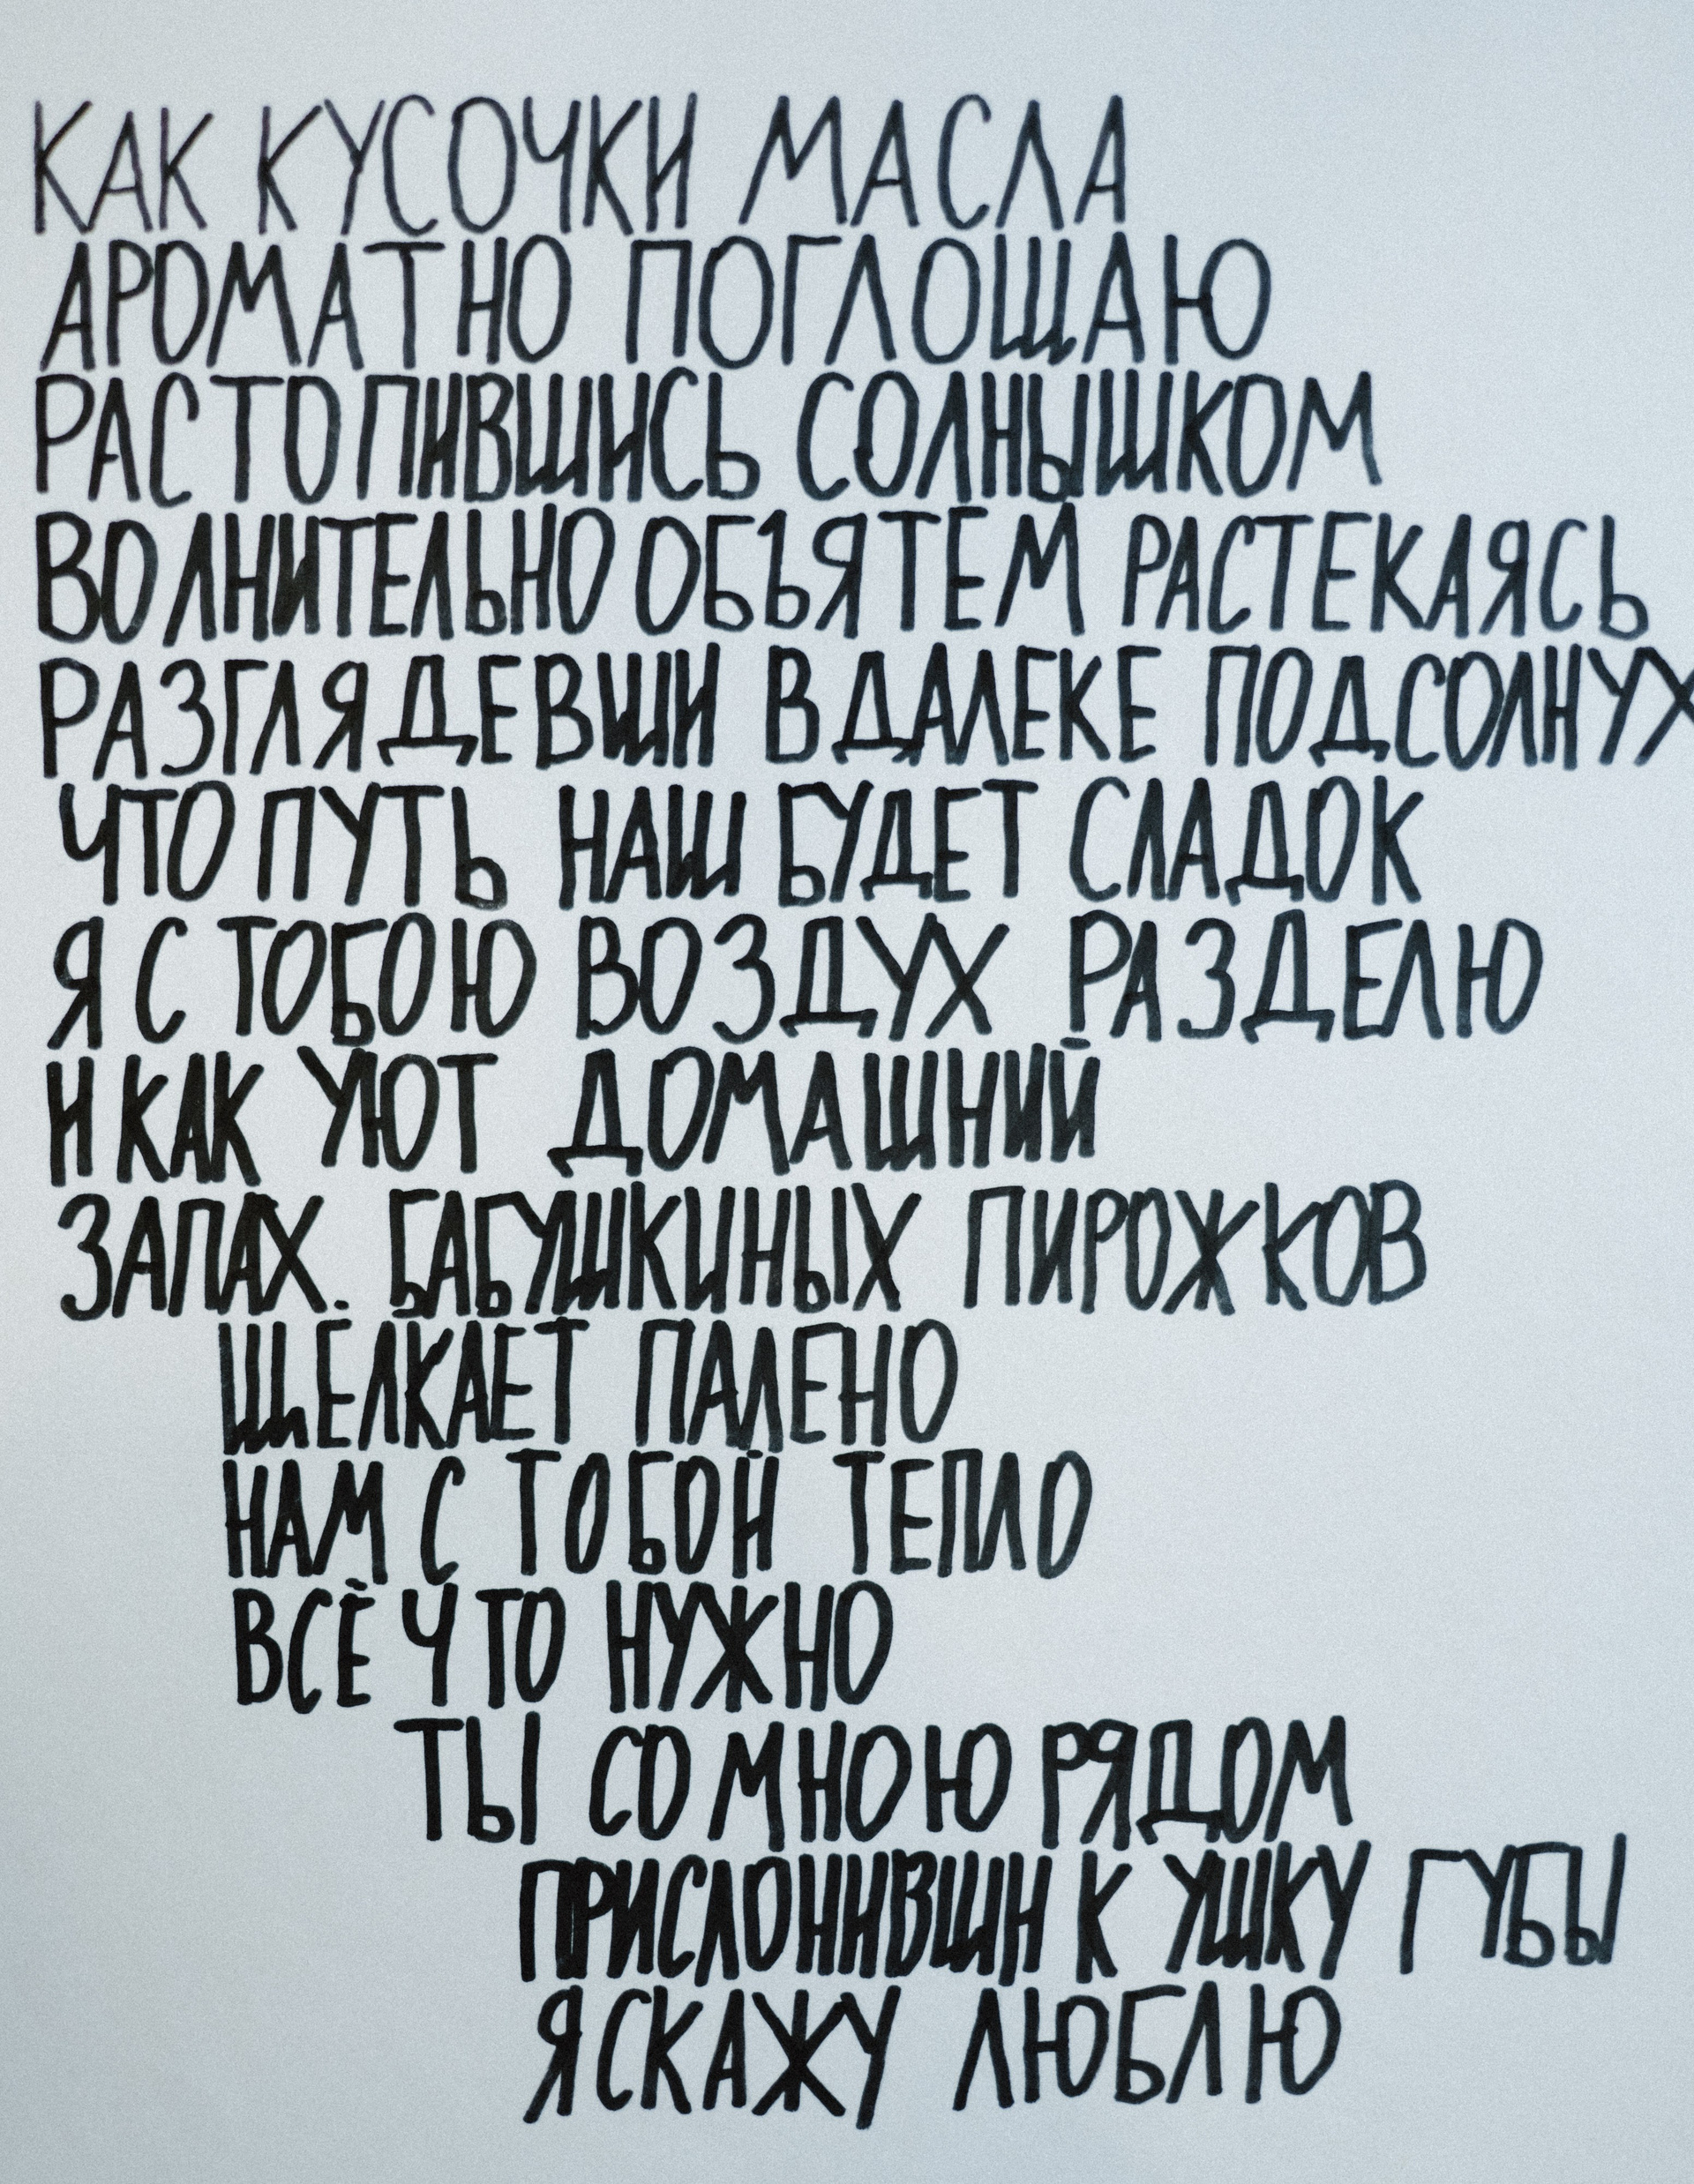 КАК КУСОЧКИ МАСЛА
АРОМАТНО ПОГЛОЩАЮ
РАСТОПИВШИСЬ СОЛНЫШКОМ
ВОЛНИТЕЛЬНО ОБЪЯТЕМ РАСТЕКАЯСЬ
РАЗГЛЯДЕВШИ ВДАЛЕКЕ ПОДСОЛНУХ
ЧТО ПУТЬ НАШ БУДЕТ СЛАДОК
Я С ТОБОЮ ВОЗДУХ РАЗДЕЛЮ
И КАК УЮТ ДОМАШНИЙ
ЗАПАХ. БАБУШКИНЫХ ПИРОЖКОВ
ЩЁЛКАЕТ ПАЛЕНО
НАМ С ТОБОЙ ТЕПЛО
ВСЁ ЧТО НУЖНО
ТЫ СО МНОЮ РЯДОМ
ПРИСЛОНИВШИ К УШКУ ГУБЫ
Я СКАЖУ ЛЮБЛЮ